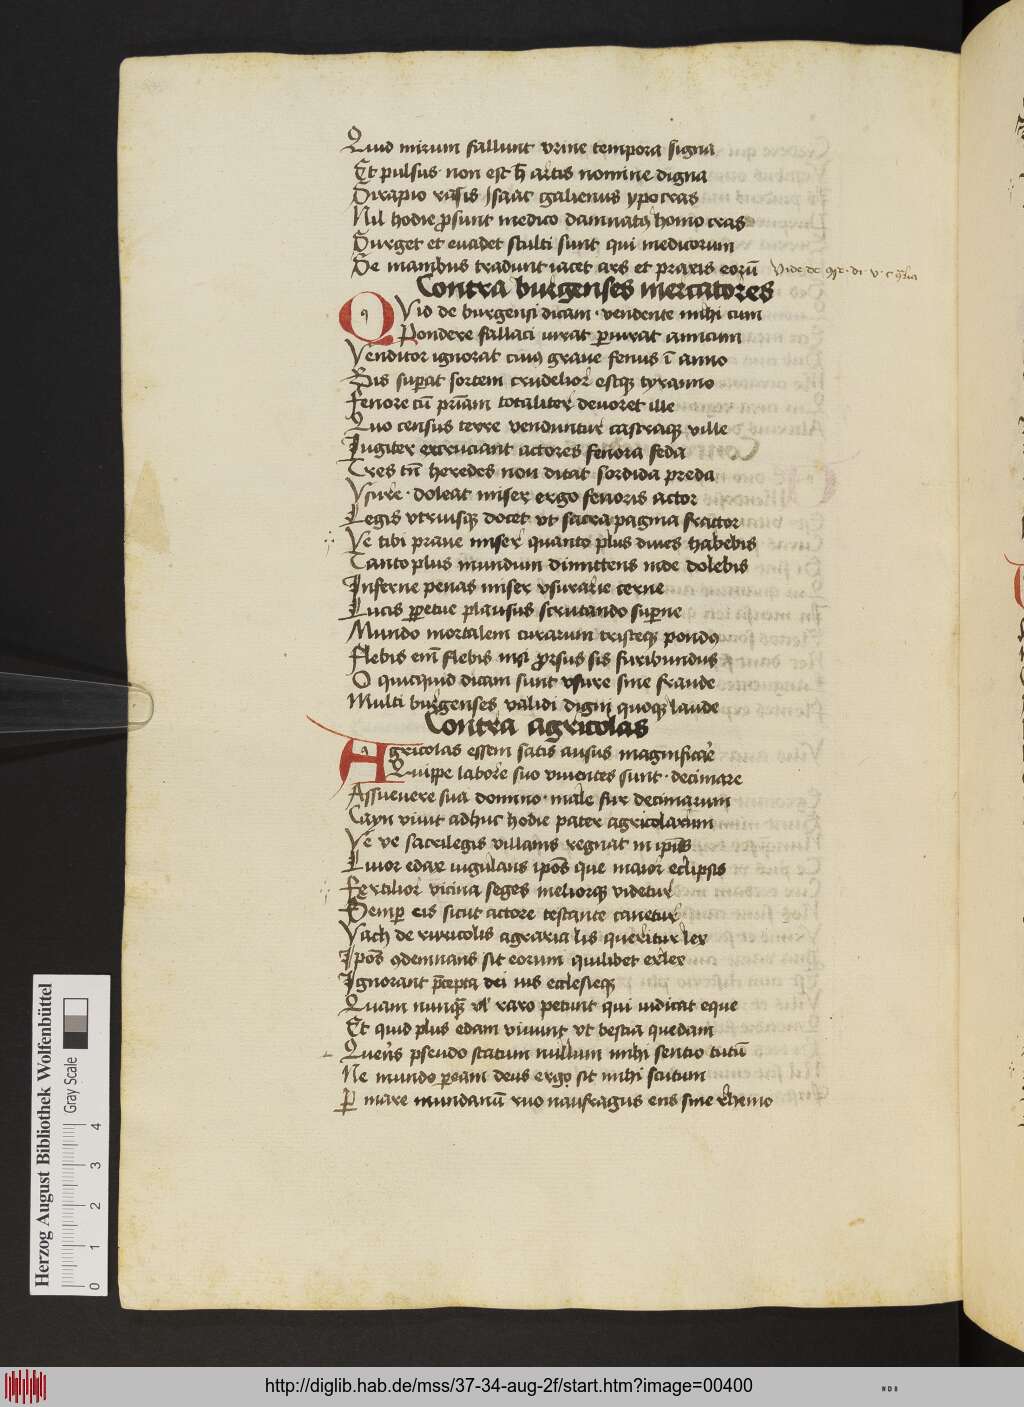 Quid mirum fallunt vrine tempora signa
Et pulsus non est h̄ artis nomine digna
Dirapio rasis Isaac galienus ypocras
Nil hodie ꝓsunt medico damnatꝰ homo cras
Surget et euadet stulti sunt qui medicorum
Se manibus tradunt iacet ars et praxis eorū
Vide de
Contra burgenses mercatores
QVid de burgensi dicam · vendente mihi cum
Pondere fallaci iurat ꝑiurat amicum
Venditor ignorat cuiꝰ graue fenus ī anno
Bis suꝑat sortem crudelior estqꝫ tyranno
Fenore cū priam totaliter deuoret ille
Quo census terre venduntur castraqꝫ ville
Iugiter excruciant actores fenora feda
Tres tn̄ heredes non ditat sordida preda
Vsure · doleat miser ergo fenoris actor
Legis vtriusqꝫ docet vt sacra pagina fractor
Ve tibi praue miser quanto plus diues habebis
Tanto plus mundum dimittens inde dolebis
Inferne penas miser vsurarie cerne
Lucis ꝑpetue plausus scrutando suꝑne
Mundo mortalem curarum tristeqꝫ pondꝰ
Flebis em̄ flebis nisi ꝓrsus sis furibundus
O quicquid dicam sunt vsure sine fraude
Multi burgenses validi digni quoqꝫ laude
Contra agricolas
Agricolas essem satis ausus magnificare
Quippe labore suo viuentes sunt · decimare
Assueuere sua domino · male fur decimarum
Cayn viuit adhuc hodie pater agricolarum
Ve ve sacrilegis villanis regnat in ipīs
Liuor edax iugulans ipōs que maior eclipsis
Fertilior vicina seges meliorqꝫ videtur
Semꝑ eis sicut actore testante canetur
Vach de ruricolis agraria lis queritur lex
Ipōs ꝯdemnans sit eorum quilibet exlex
Ignorant p̄cepta dei ius ecclesieqꝫ
Quam nunqꝫ vl raro petunt qui iudicat eque
Et quid plus edam viuunt vt bestia quedam
Querēs pseudo statum nullum mihi sentio tutū
Ne mundo ꝑeam deus ergo sit mihi scutum
Ꝑ mare mundanū ruo naufragus ens sine rhemo
Herzog August Bibliothek Wolfenbüttel
Gray Scale
0 1 2 3 4
http://diglib.hab.de/mss/37-34-aug-2f/start.htm?image=00400